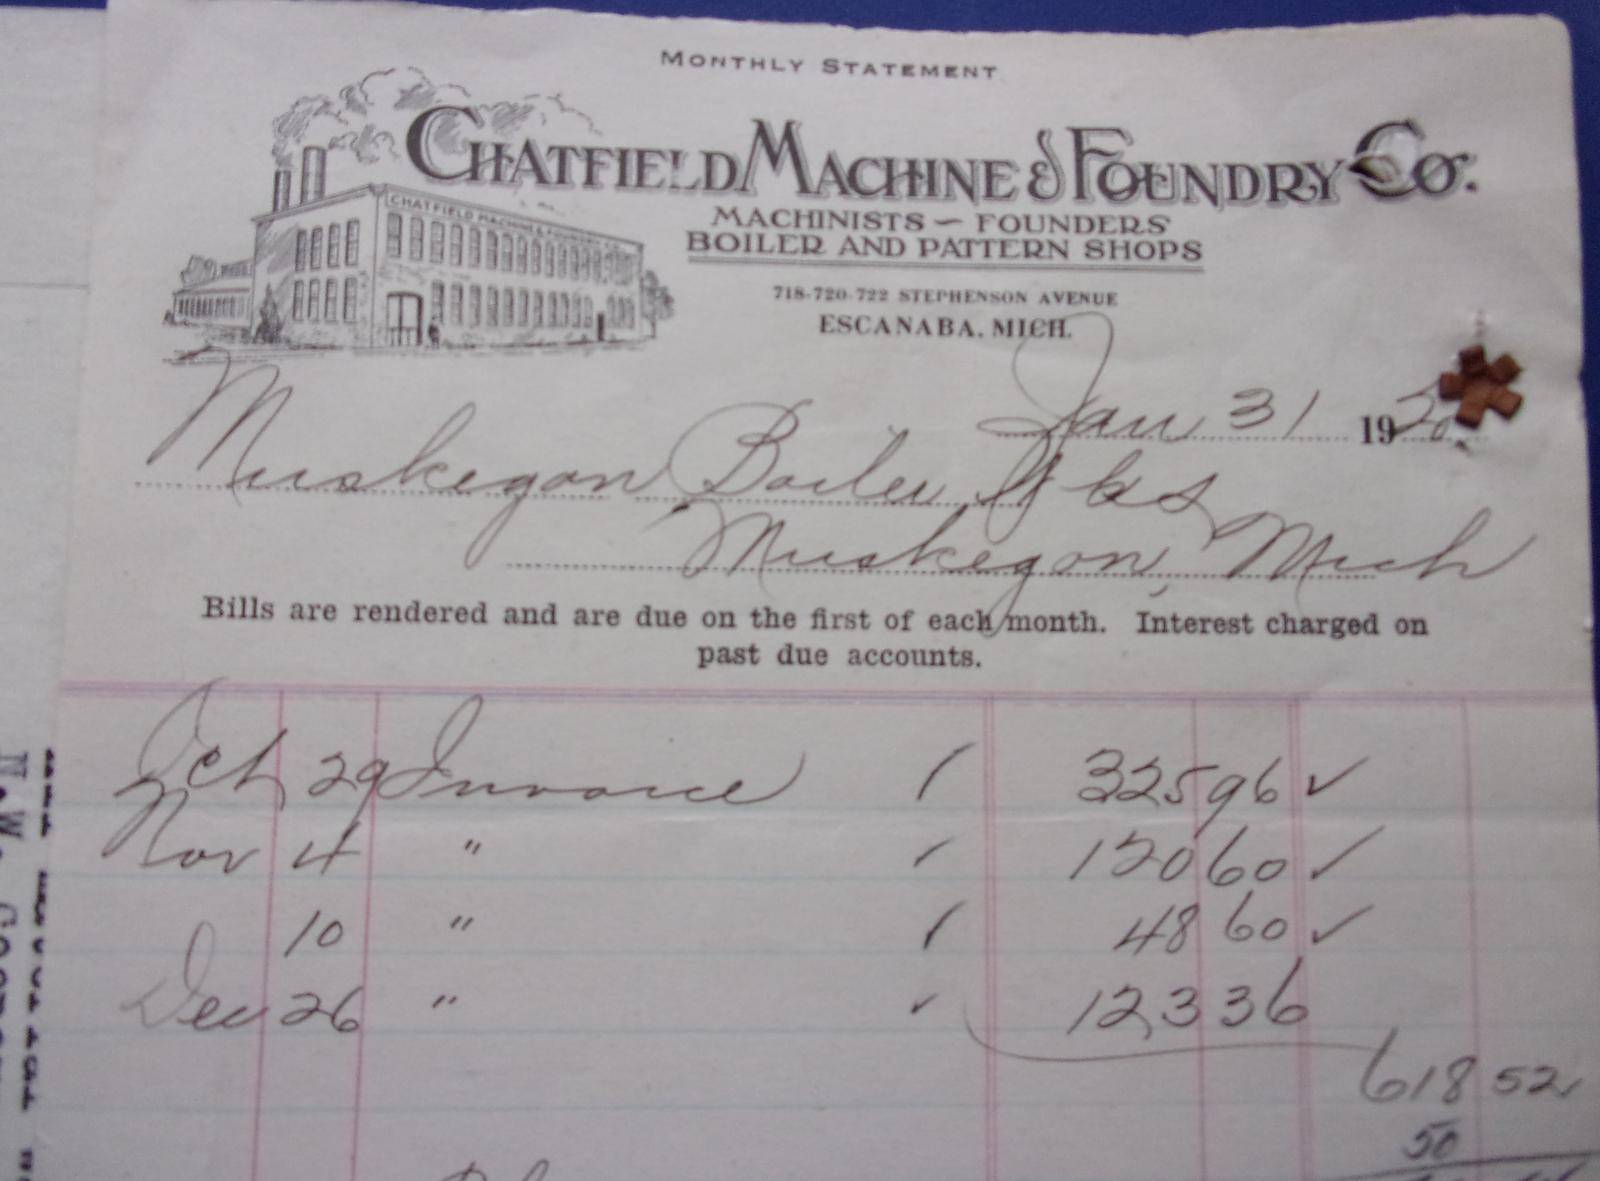 MONTHLY STATEMENT
CHATFIELD MACHINE & FOUNDRY CO.
CHATFIELD MACHINE & FOUNDRY CO.
MACHINISTS — FOUNDERS
BOILER AND PATTERN SHOPS
718-720-722 STEPHENSON AVENUE
ESCANABA, MICH.
Jan 31 1920
Muskegon Boiler Wks
Muskegon, Mich
Bills are rendered and are due on the first of each month. Interest charged on
past due accounts.
Oct 29 Invoice 325 96 ✓
Nov 4 " 120 60 ✓
10 " 48 60 ✓
Dec 26 " 123 36
618 52
50